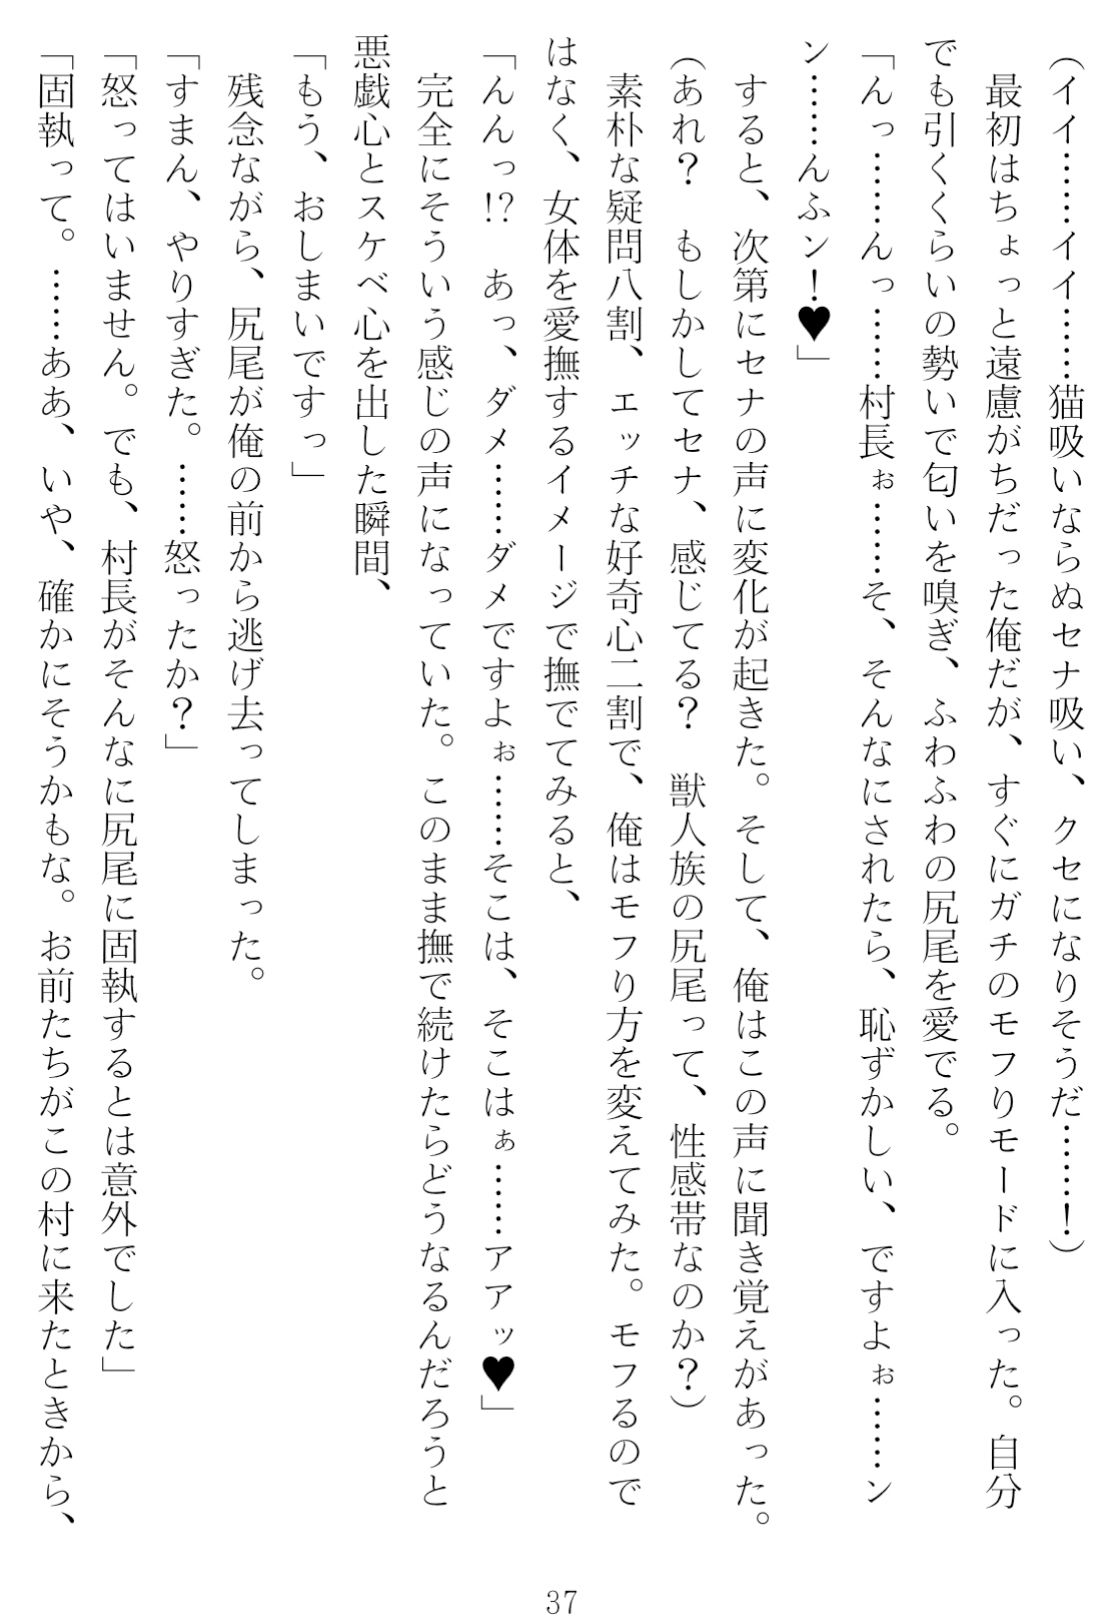 （イイ……イイ……猫吸いならぬセナ吸い、クセになりそうだ………！）
　最初はちょっと遠慮がちだった俺だが、すぐにガチのモフりモードに入った。自分
でも引くくらいの勢いで匂いを嗅ぎ、ふわふわの尻尾を愛でる。
「んっ………んっ……村長ぉ………そ、そんなにされたら、恥ずかしい、ですよぉ………ン
ン……んふン！♥」
　すると、次第にセナの声に変化が起きた。そして、俺はこの声に聞き覚えがあった。
（あれ？　もしかしてセナ、感じてる？　獣人族の尻尾って、性感帯なのか？）
　素朴な疑問八割、エッチな好奇心二割で、俺はモフり方を変えてみた。モフるので
はなく、女体を愛撫するイメージで撫でてみると、
「んんっ!?　あっ、ダメ……ダメですよぉ……そこは、そこはぁ……アアッ♥」
　完全にそういう感じの声になっていた。このまま撫で続けたらどうなるんだろうと
悪戯心とスケベ心を出した瞬間、
「もう、おしまいですっ」
　残念ながら、尻尾が俺の前から逃げ去ってしまった。
「すまん、やりすぎた。……怒ったか？」
「怒ってはいません。でも、村長がそんなに尻尾に固執するとは意外でした」
「固執って。……ああ、いや、確かにそうかもな。お前たちがこの村に来たときから、
37